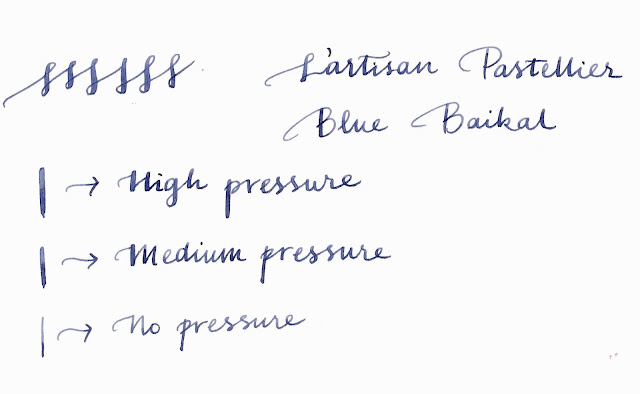 L'artisan Pastellier
Blue Baikal
→ High pressure
→ Medium pressure
→ No pressure